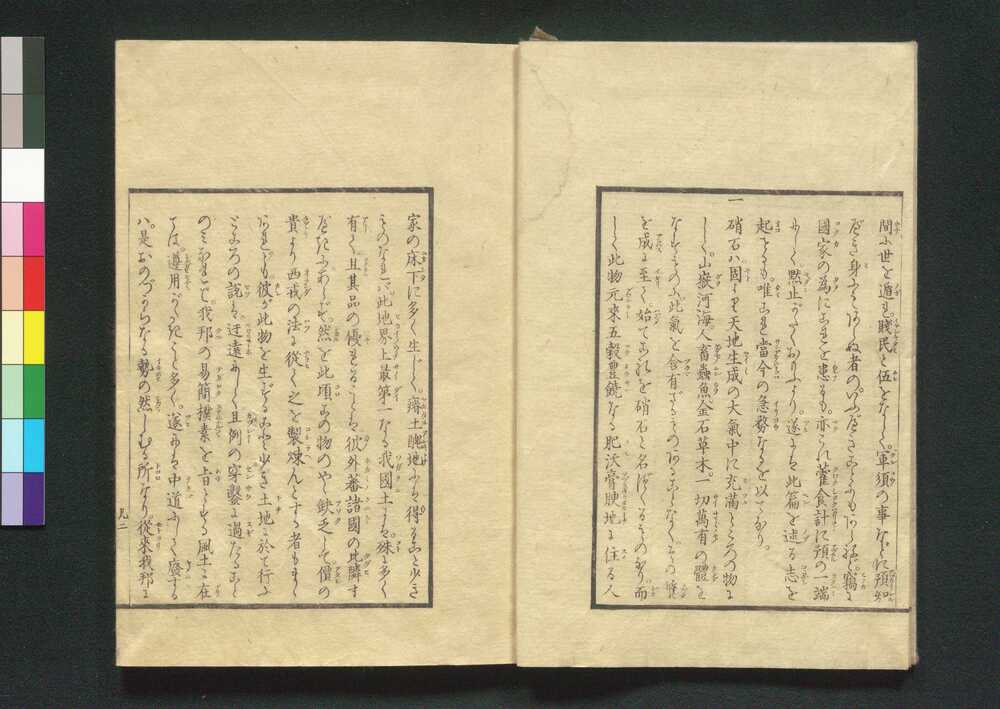 間に世を遁れ。賤民と伍をなして。軍須の事などに預知
べき身にしあらぬ者の。いふべきことにもあらねど。竊に
國家の為にこれを患るも。亦これ藿食計に預の一端
にして。黙止がたくおもふより。遂にハ此篇を述る志を
起せるも。唯これ當今の急務なるを以てなり。
一
硝石ハ固より天地生成の大氣中に充満るところの物に
して。山嶽河海人畜蟲魚金石草木。一切萬有の體と
なるもの。此氣を含有ざるものあることなく。その
を成に至て。始てこれを硝石と名づくるものなり。而
して此物元來五穀豊饒なる肥沃膏腴地に住る人
家の床下に多く生じて。瘠土醜地にハ得ること少き
ものなれバ。此地界上最第一なる我國土にハ。殊に多く
有て。且其品の優れることハ。彼外蕃諸國の比隣す
べきにあらず。然を此頃この物のやゝ缺乏して價の
貴より西戎の法に從て之を製煉んとする者もまゝ
あれども。彼が此物を生ずること少き土地に於て行ふ
ところの説ハ。迂遠にして且例の穿鑿に過たること
のミなれバ。我邦の易簡撲素を旨とする風土に在
てハ。遵用がたきこと多く。遂にハ中道にして廢する
ハ。是おのづからなる勢の然しむる所なり。從來我邦に
九二